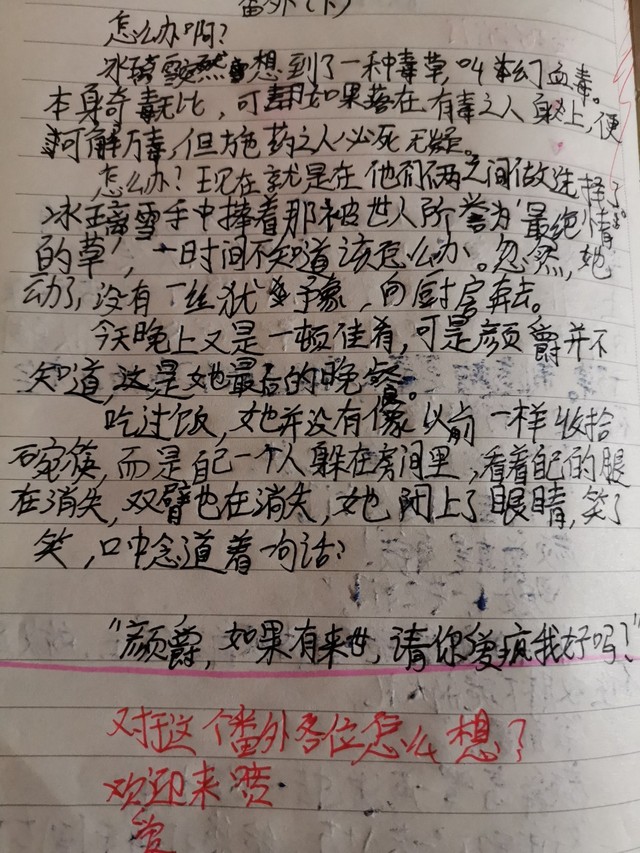 番外(下)
怎么办啊?
冰璃雪突然想到了一种毒草,叫幻血毒。
本身奇毒无比,可如果落在有毒之人身上,便
可解万毒,但施药之人必死无疑。
怎么办?现在就是在他们俩之间做选择了。
冰璃雪手中捧着那被世人所誉为'最绝情
的草',一时间不知道该怎么办。忽然,她
动了,没有一丝犹豫,向厨房奔去。
今天晚上又是一顿佳肴,可是颜爵并不
知道,这是她最后的晚餐。
吃过饭,她并没有像以前一样收拾
碗筷,而是自己一个人躲在房间里,看着自己的腿
在消失,双臂也在消失,她闭上了眼睛,笑了
笑,口中念道着一句话:
"颜爵,如果有来世,请你爱疯我好吗?"
对于这个番外各位怎么想?
欢迎来喷
爱